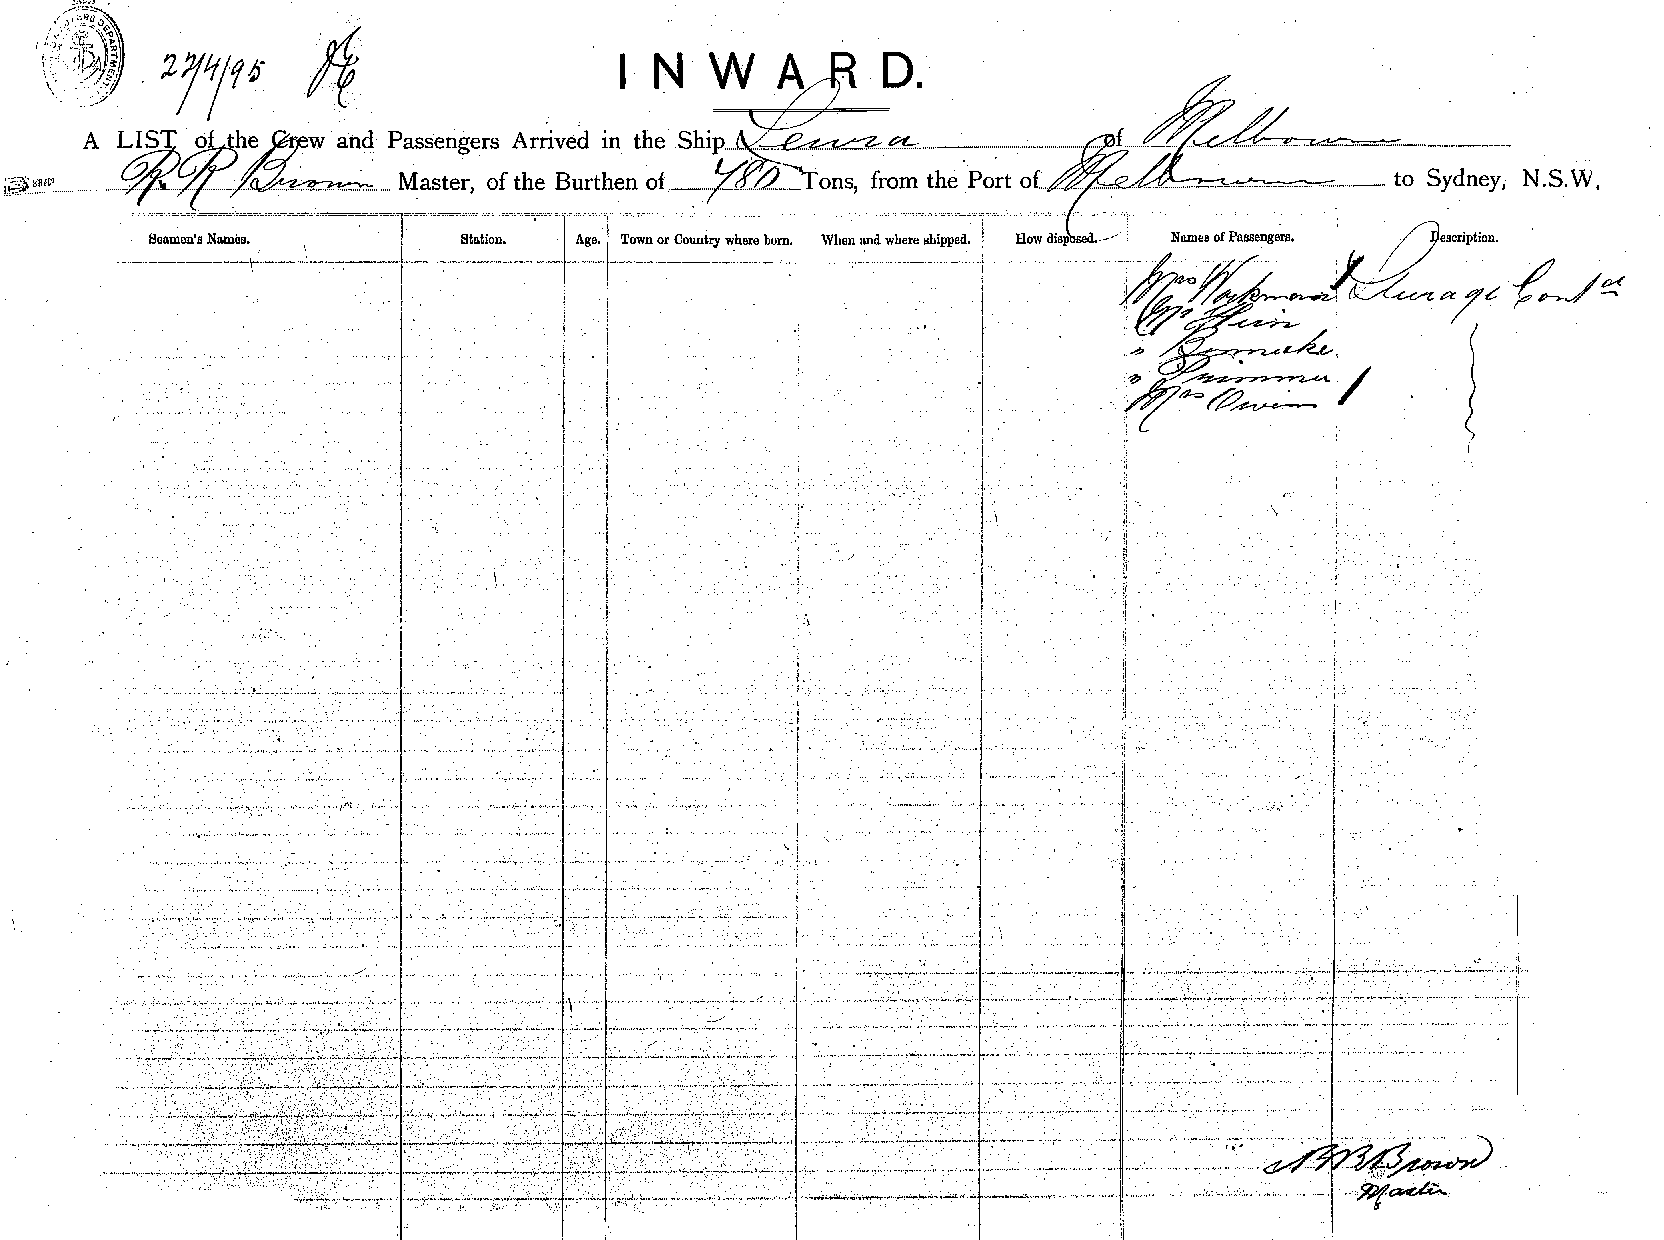 CUSTOMS DEPARTMENT
27/4/95
INWARD.
A LIST of the Crew and Passengers Arrived in the Ship Leura of Melbourne
R. R Brown Master, of the Burthen of 480 Tons, from the Port of Melbourne to Sydney, N.S.W.
Seamen's Names. Station. Age. Town or Country where born. When and where shipped. How disposed. Names of Passengers. Description.
Mrs Workman Steerage Contd
Mr
"
"
Mrs Owen
R R Brown
Master